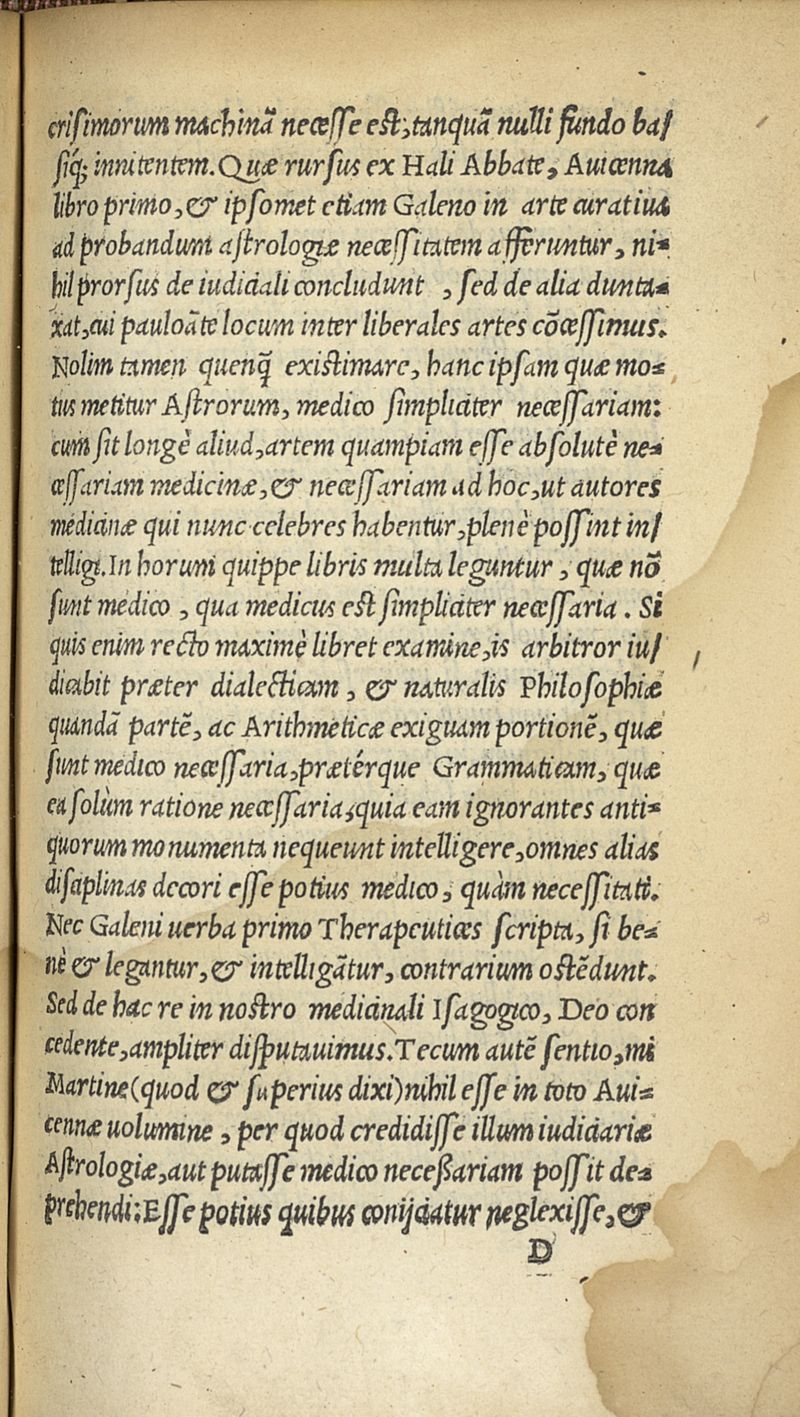 crisimorum machinā necesse est; tanquā nulli fundo ba/
siq́; innitentem. Quæ rursus ex Hali Abbate, Auicenna
libro primo, & ipsomet etiam Galeno in arte curatiua
ad probandum astrologiæ necessitatem afferuntur, ni-
hil prorsus de iudiciali concludunt , sed de alia dunta-
xat, cui pauloāte locum inter liberales artes cōcessimus.
Nolim tamen quenq̄ existimare, hanc ipsam quæ mo-
tus metitur Astrorum, medico simpliciter necessariam:
cum sit longè aliud, artem quampiam esse absolutè ne-
cessariam medicinæ, & necessariam ad hoc, ut autores
medicinæ qui nunc celebres habentur, plenè possint in/
telligi. In horum quippe libris multa leguntur , quæ nō
sunt medico , qua medicus est simpliciter necessaria . Si
quis enim recto maximè libret examine, is arbitror iu/
dicabit præter dialecticam , & naturalis Philosophiæ
quandā partē, ac Arithmeticæ exiguam portionē, quæ
sunt medico necessaria, prætérque Grammaticam, quæ
ea solùm ratione necessaria, quia eam ignorantes anti-
quorum monumenta nequeunt intelligere, omnes alias
disciplinas decori esse potius medico, quàm necessitati.
Nec Galeni uerba primo Therapeutices scripta, si be-
nè & legantur, & intelligātur, contrarium ostēdunt.
Sed de hac re in nostro medicinali Isagogico, Deo con
cedente, ampliter disputauimus. Tecum autē sentio, mi
Martine (quod & superius dixi) nihil esse in toto Aui-
cennæ uolumine , per quod credidisse illum iudiciariæ
Astrologiæ, aut putasse medico neceßariam possit de-
prehendi: Esse potius quibus conijciatur neglexisse, &
D